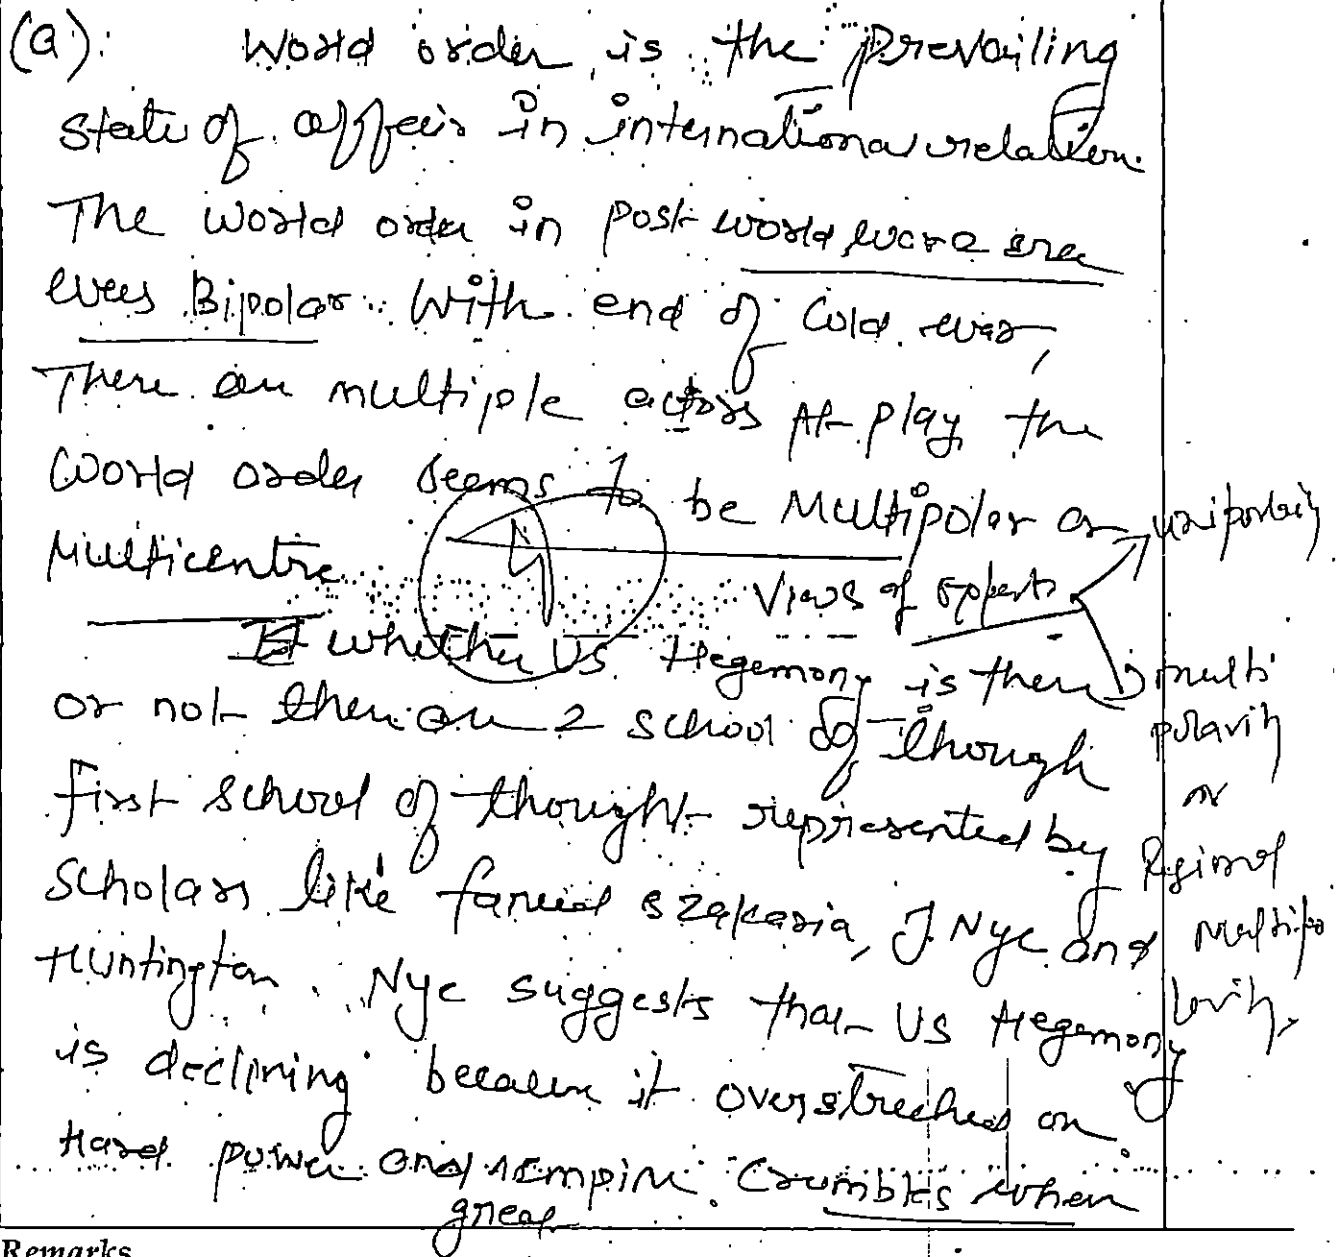 (a): World order is the prevailing
state of affairs in international relation.
The World order in post world war 2 era
was Bipolar. With end of Cold war,
There are multiple actors At play, the
World order seems to be Multipolar or
Multicentric.
Views of experts
unipolarity
multi
polarity
or
Regional
Multipo
larity
whether US Hegemony is there
or not there are 2 school of though
first school of thought represented by
scholars like fareed zakaria, J. Nye and
Huntington. Nye suggests that US Hegemony
is declining because it overstreched on
Hard power and great empire Crumbles when
Remarks